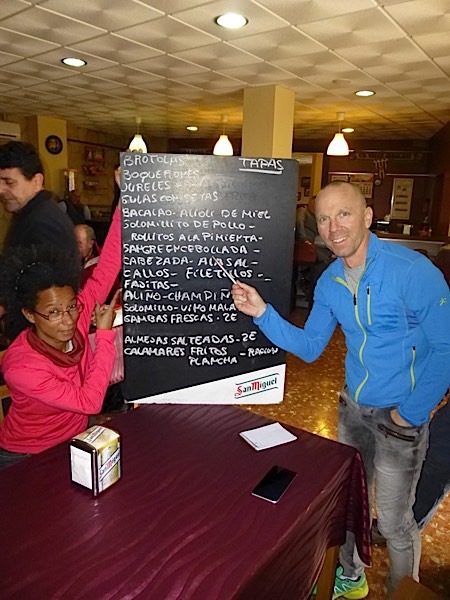 TAPAS
BROTOLAS
BOQUERONES
JURELES
GULAS CON SETAS
BACALAO - ALIOLI DE MIEL
SOLOMILLITO DE POLLO -
ROLLITOS A LA PIMIENTA -
SANGRE ENCEBOLLADA
CABEZADA - AJO SAL -
CALLOS - FILETILLOS -
FAJITAS -
ALIÑO - CHAMPIÑ
SOLOMILLO - VINO MALA
GAMBAS FRESCAS - 2E
ALMEJAS SALTEADAS - 2E
CALAMARES FRITOS - RACION
PLANCHA
San Miguel
San Miguel